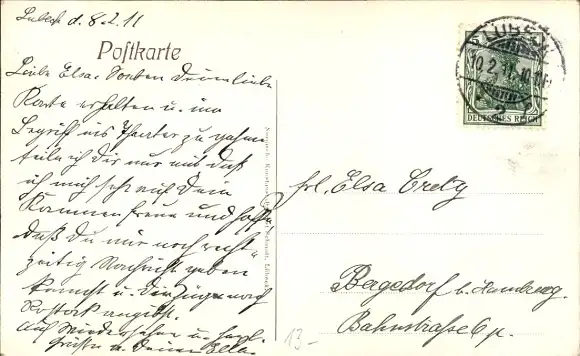 Lübeck d. 8.2.11
Postkarte
Liebe Elsa. Soeben Deine liebe
Karte erhalten u. im
Begriff ins Theater zu gehen
teile ich Dir nur mit daß
ich mich sehr auf Dein
Kommen freue und hoffe,
daß Du mir noch recht-
zeitig Nachricht geben
kannst u. die Züge nach
Rostock angibst.
Auf Wiedersehn u. herzl.
Grüsse v. Deiner Ella.
LÜBECK
10.2.11.
2
DEUTSCHES REICH
Frl. Elsa
Bergedorf b. Hamburg.
Bahnstraße 6 p.
13-